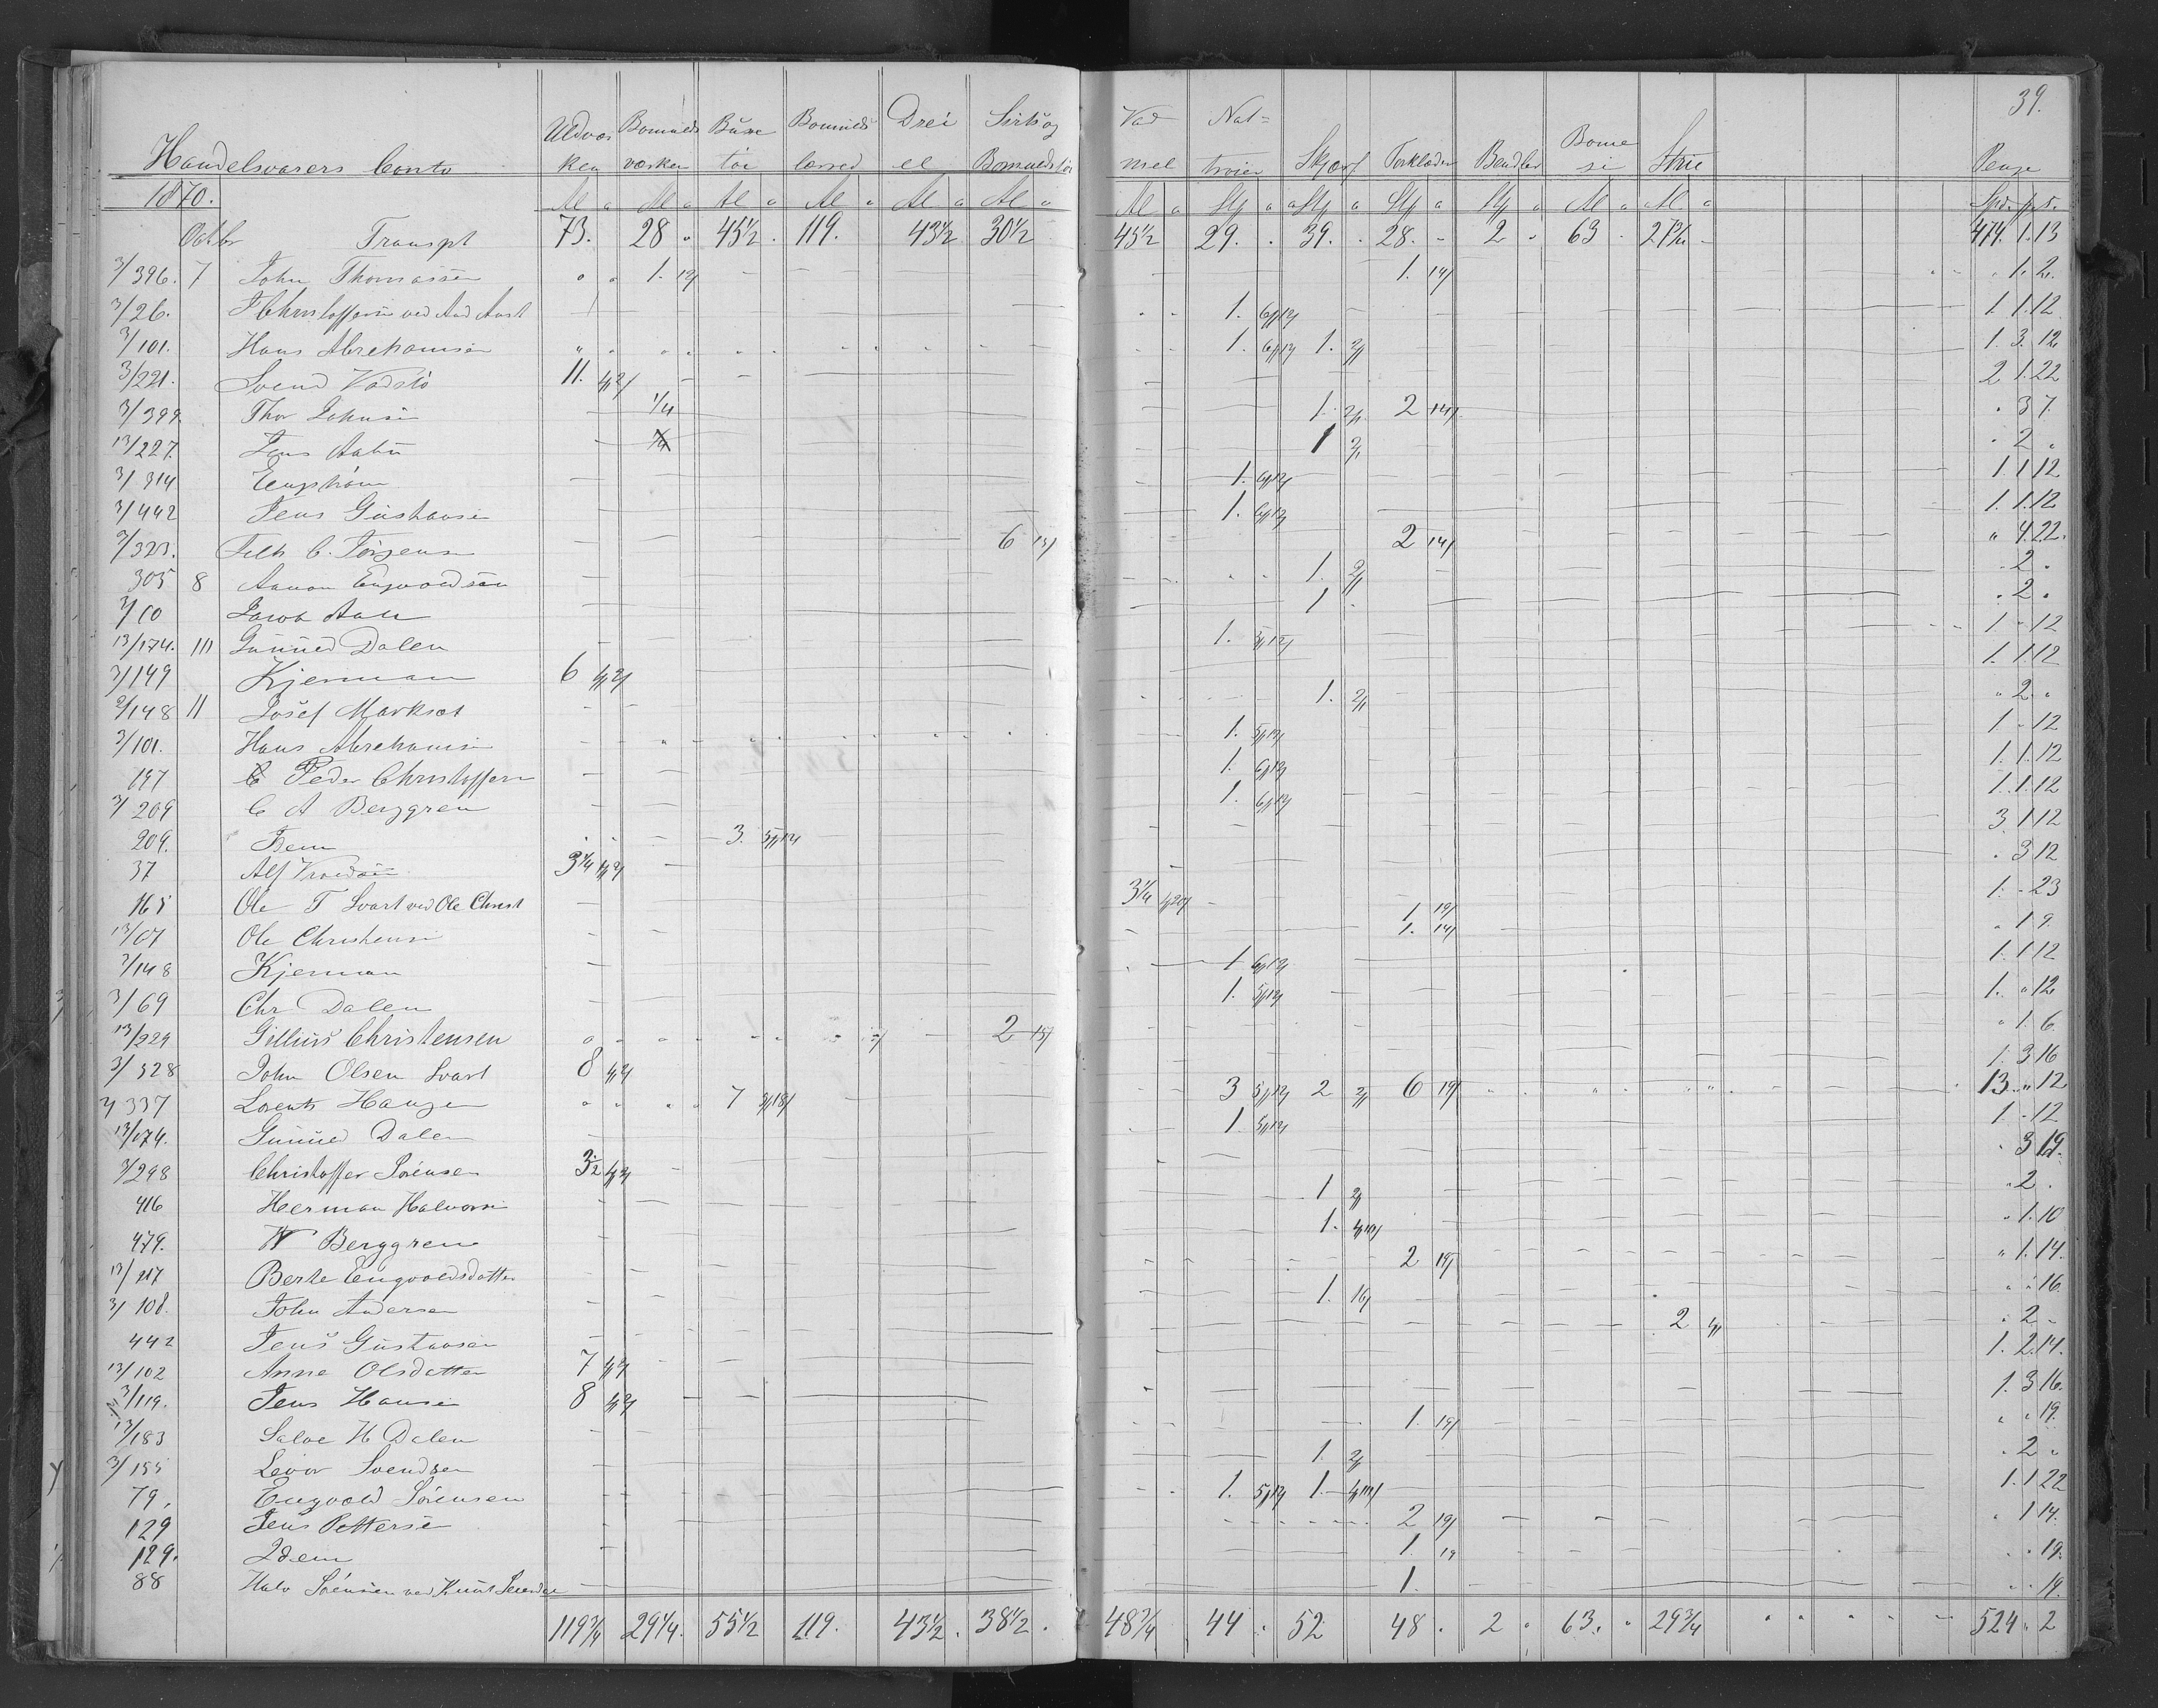 39.
Handelsvarers Conto Uldvæsken Bomuldsvæsken Buxetöi Bomuldslærred Dreiel Sirts og Bomuldstöi Vadmel Nattröier Skjærf Forklæder Bendler Bomesi Strie Penge
1870. Al a Al a Al a Al a Al a Al a Al a Stk a Stk a Stk a Stk a Al a Al a Spd. ß
Octbr Transpt 73. 28 45½ 119. 43½ 30½ 45½ 29. 39. 28. 2 63 27¾ 474. 1. 13
3/396. 7 John Thomassen 1. 19/ 1. 19/ 1. 2.
3/26. Christoffersen ved And Aust 1. 6/12/ 1 1. 12
3/101. Hans Abrehamsen 1. 6/12 1. 2/ 1. 3. 12
3/221. Svend Vadstö 11. 4/2/ 2 1. 22
3/399. Thor Johnsen 1/4 1. 2/ 2 14/ 3 7.
13/227. Jens 1 2/ 2
3/314 Engström 1. 6/12/ 1. 1 12
3/442 Jens Gustavsen 1. 6/12 1. 1. 12
3/323. C. Jörgensen 6 15/ 2 14/ 4. 22.
305 8 Aanon Engvoldsen 1. 2/ 2
3/60 Jacob 1 2
13/174. 10 Gunned Dalen 1. 5/12/ 1 12
3/149 Kjerman 6 4/2/ 1. 1. 12
3/148 11 Josef Marksæt 1. 2/ 2
3/101. Hans Abrehamsen 1. 5/12/ 1 12
197 Peder Christoffersen 1. 6/12/ 1. 1. 12
3/209 C A Berggren 1. 6/12/ 1. 1. 12
209. Idem 3. 5/12/ 3 1 12
37 Alf 3¼ 4/2/ 3 12
165 Ole T Svart ved Ole Christ 3¼ 4/20/ 1. 19/ 1. 23
13/67 Ole Christensen 1. 14/ 1 9.
3/148 Kjerman 1 6/12/ 1. 1 12
3/69 Chr Dalen 1. 5/12/ 1. 12
13/229 Gillius Christensen 2 15/ 1. 6
3/328 John Olsen Svart 8 4/2/ 1. 3 16
3/337 Lorents Hansen 7 3/18/ 3 5/12 2 2/ 6 19/ 13. 12
13/174. Gunned Dalen 1. 5/12/ 1 12
3/298 Christoffer Sörensen 3½ 4/2/ 3 19.
416 Herman Halvorsen 1 2/ 2
479. W Berggren 1. 4/10/ 1. 10
13/217 Berte Engvoldsdatter 2 19/ 1. 14.
3/108. John Andersen 1. 16/ 16
442 Jens Gustavsen 2 4/ 2
13/102 Anne Olsdatter 7 4/2/ 1. 2. 14.
3/119. Jens Hansen 8 4/2/ 1. 3 16.
13/183 Salve H Dalen 1. 19/ 19.
3/155 Leivor Svendsen 1. 2/ 2
79. Engvold Sörensen 1. 5/12 1. 4/10/ 1. 1 22
129 Jens Pettersen 2 19/ 1 14.
129. Idem 1. 19 19.
88 Halv Sörensen ved Knut 1. 19.
119¾ 29¼. 55½ 119. 43½. 38½. 48¾ 44 52 48 2 63. 29¾ 524 2